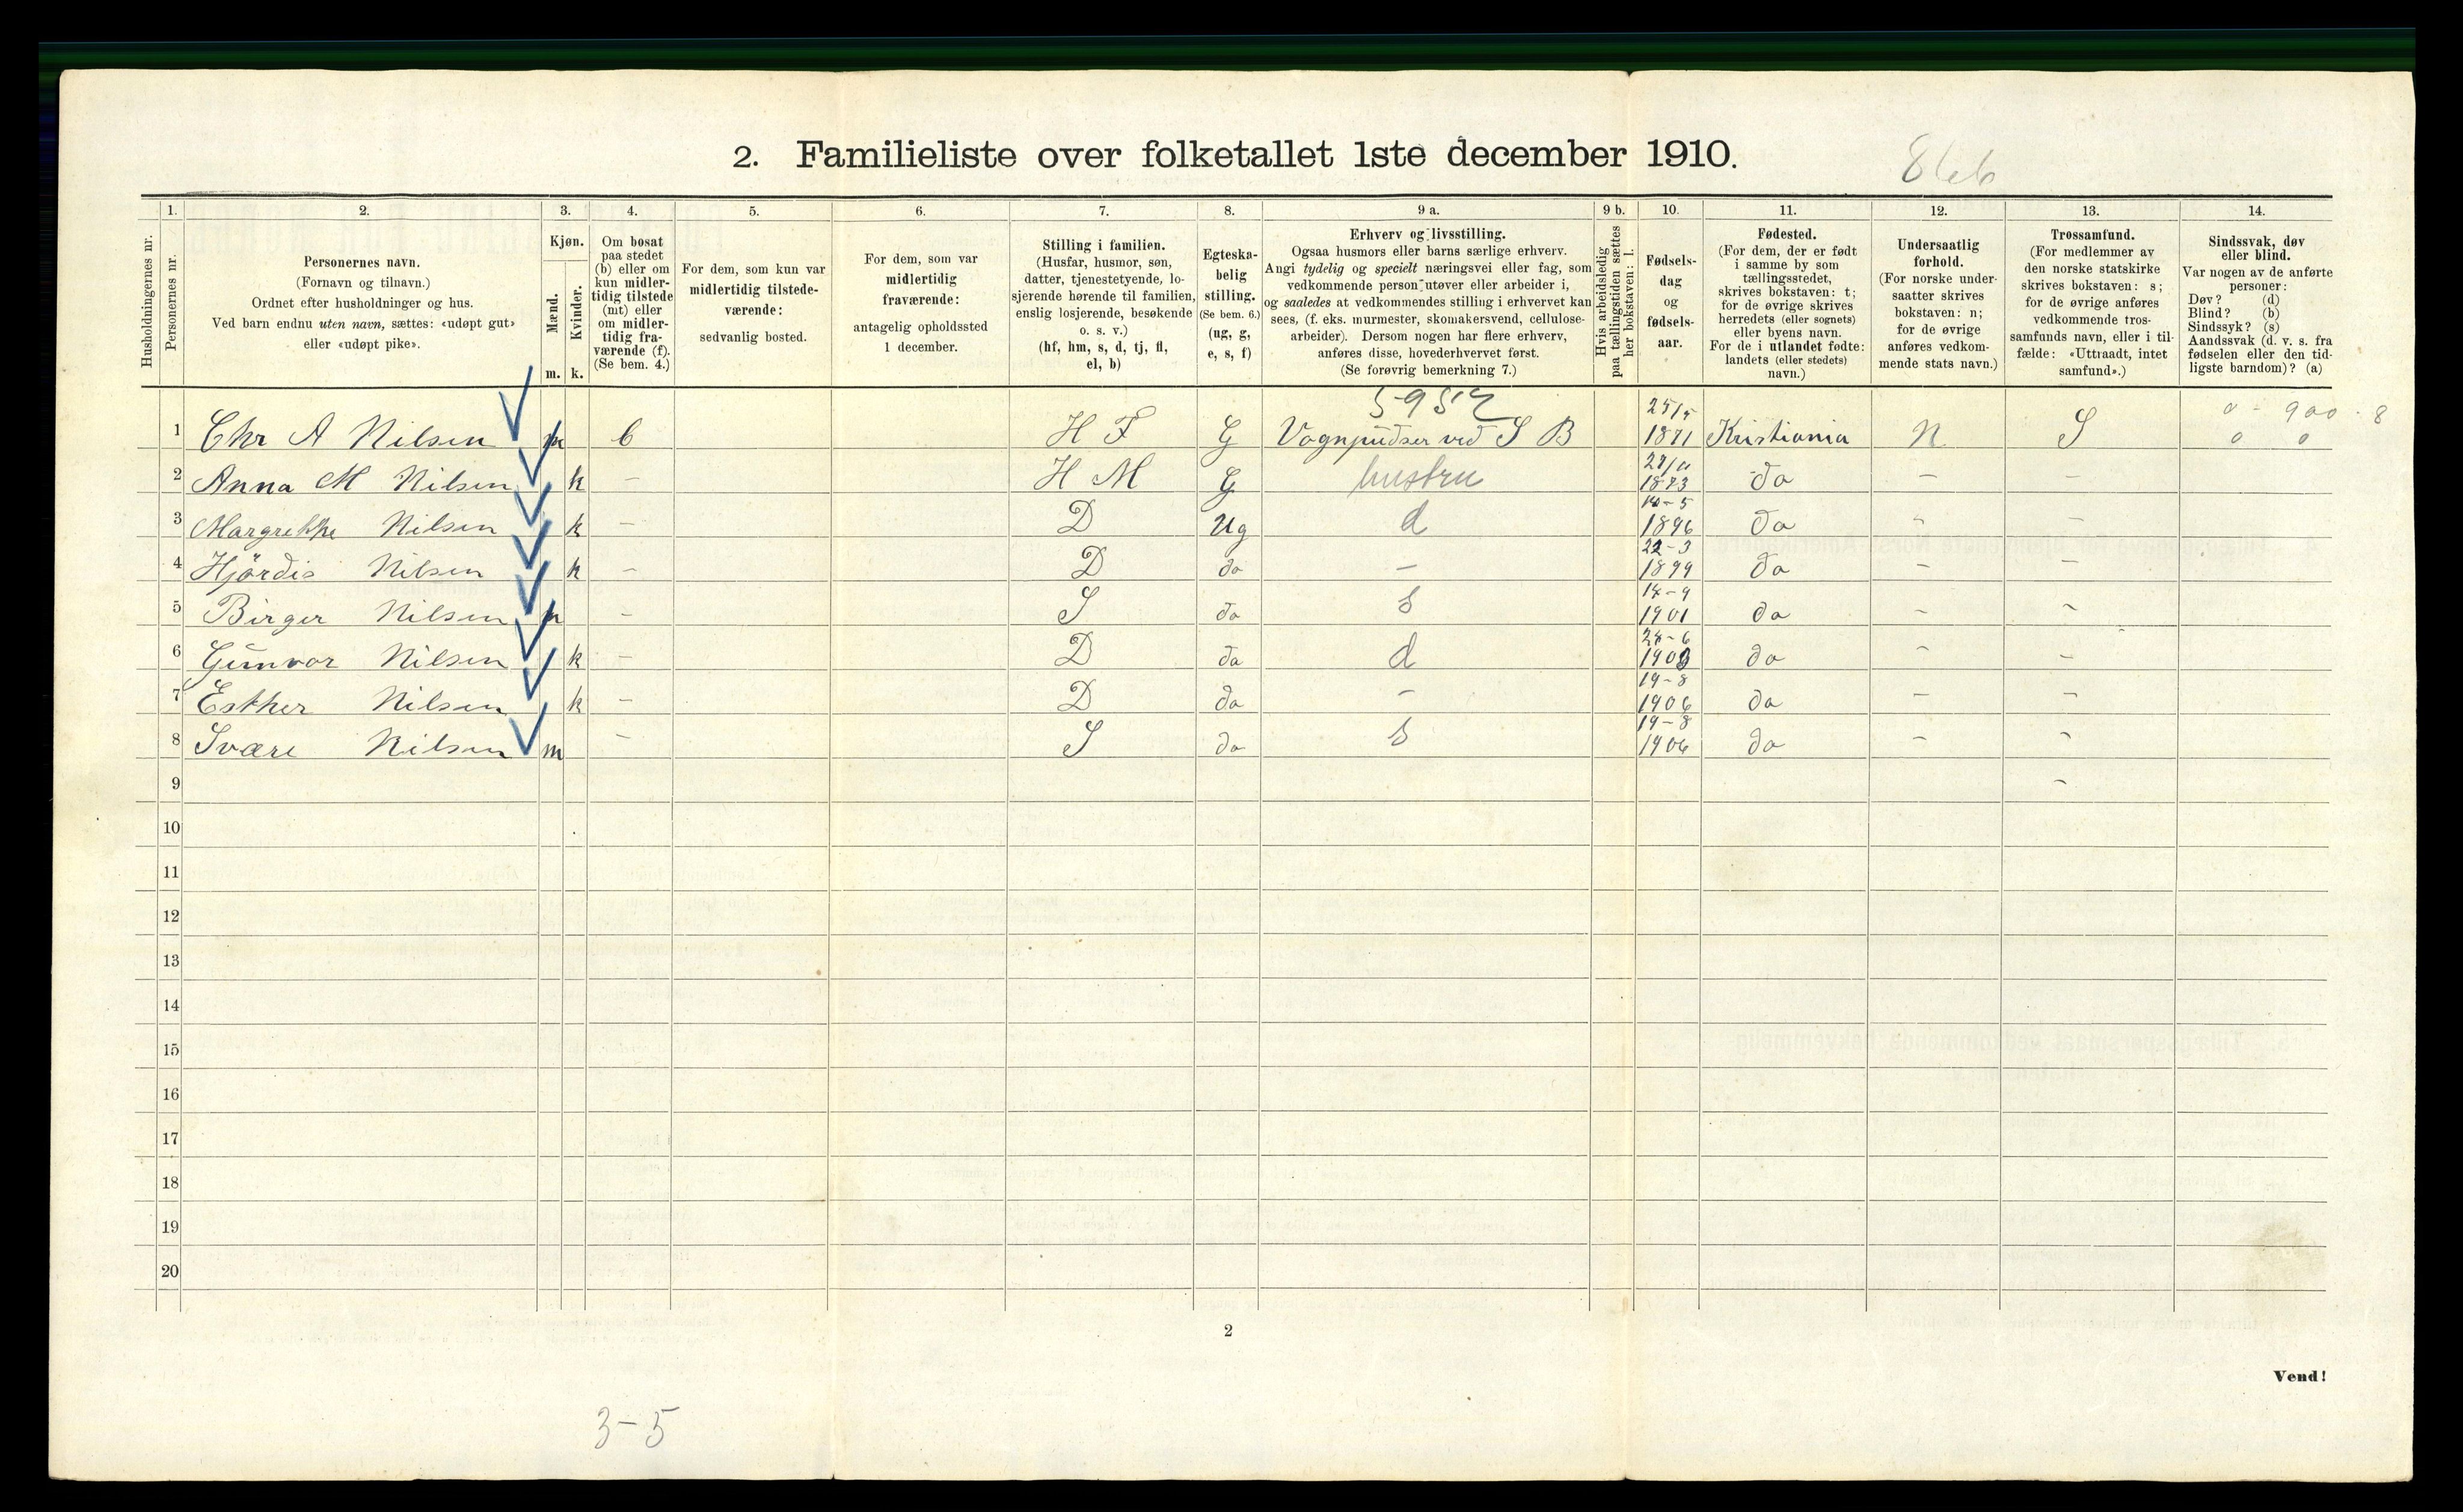 2. Familieliste over folketallet 1ste december 1910.
866
1. 2. 3. 4. 5. 6. 7. 8. 9 a. 9 b. 10. 11. 12. 13. 14.
Husholdningernes nr.
Personernes nr.
Personernes navn.
(Fornavn og tilnavn.)
Ordnet efter husholdninger og hus.
Ved barn endnu uten navn, sættes: «udøpt gut»
eller «udøpt pike».
Kjøn.
Mænd.
Kvinder.
m. k.
Om bosat
paa stedet
(b) eller om
kun midler-
tidig tilstede
(mt) eller
om midler-
tidig fra-
værende (f).
(Se bem. 4.)
For dem, som kun var
midlertidig tilstede-
værende:
sedvanlig bosted.
For dem, som var
midlertidig
fraværende:
antagelig opholdssted
1 december.
Stilling i familien.
(Husfar, husmor, søn,
datter, tjenestetyende, lo-
sjerende hørende til familien,
enslig losjerende, besøkende
o. s. v.)
(hf, hm, s, d, tj, fl,
el, b)
Egteska-
belig
stilling.
(Se bem. 6.)
(ug, g,
e, s, f)
Erhverv og livsstilling.
Ogsaa husmors eller barns særlige erhverv.
Angi tydelig og specielt næringsvei eller fag, som
vedkommende person utøver eller arbeider i,
og saaledes at vedkommendes stilling i erhvervet kan
sees, (f. eks. murmester, skomakersvend, cellulose-
arbeider). Dersom nogen har flere erhverv,
anføres disse, hovederhvervet først.
(Se forøvrig bemerkning 7.)
Hvis arbeidsledig
paa tællingstiden sættes
her bokstaven: l.
Fødsels-
dag
og
fødsels-
aar.
Fødested.
(For dem, der er født
i samme by som
tællingsstedet,
skrives bokstaven: t;
for de øvrige skrives
herredets (eller sognets)
eller byens navn.
For de i utlandet fødte:
landets (eller stedets)
navn.)
Undersaatlig
forhold.
(For norske under-
saatter skrives
bokstaven: n;
for de øvrige
anføres vedkom-
mende stats navn.)
Trossamfund.
(For medlemmer av
den norske statskirke
skrives bokstaven: s;
for de øvrige anføres
vedkommende tros-
samfunds navn, eller i til-
fælde: «Uttraadt, intet
samfund».)
Sindssvak, døv
eller blind.
Var nogen av de anførte
personer:
Døv? (d)
Blind? (b)
Sindssyk? (s)
Aandssvak (d. v. s. fra
fødselen eller den tid-
ligste barndom)? (a)
5952 25/5 0 - 900 . 8
1 Chr A Nilsen m b H F G Vognpudser ved S B 1871 Kristiania N S 0 0
2 Anna M Nilsen k - H M G hustru 1873 do - -
14-5
3 Margrethe Nilsen k - D Ug d 1896 do - -
22-3
4 Hjördis Nilsen k - D do - 1899 do - -
14-9
5 Birger Nilsen m - S do s 1901 do - -
24-6
6 Gunvor Nilsen k - D do d 1903 do - -
19-8
7 Esther Nilsen k - D do - 1906 do - -
19-8
8 Svære Nilsen m - S do s 1906 do - -
9 -
10
11
12
13
14
15
16
17
18
19
20
2
Vend!
3-5